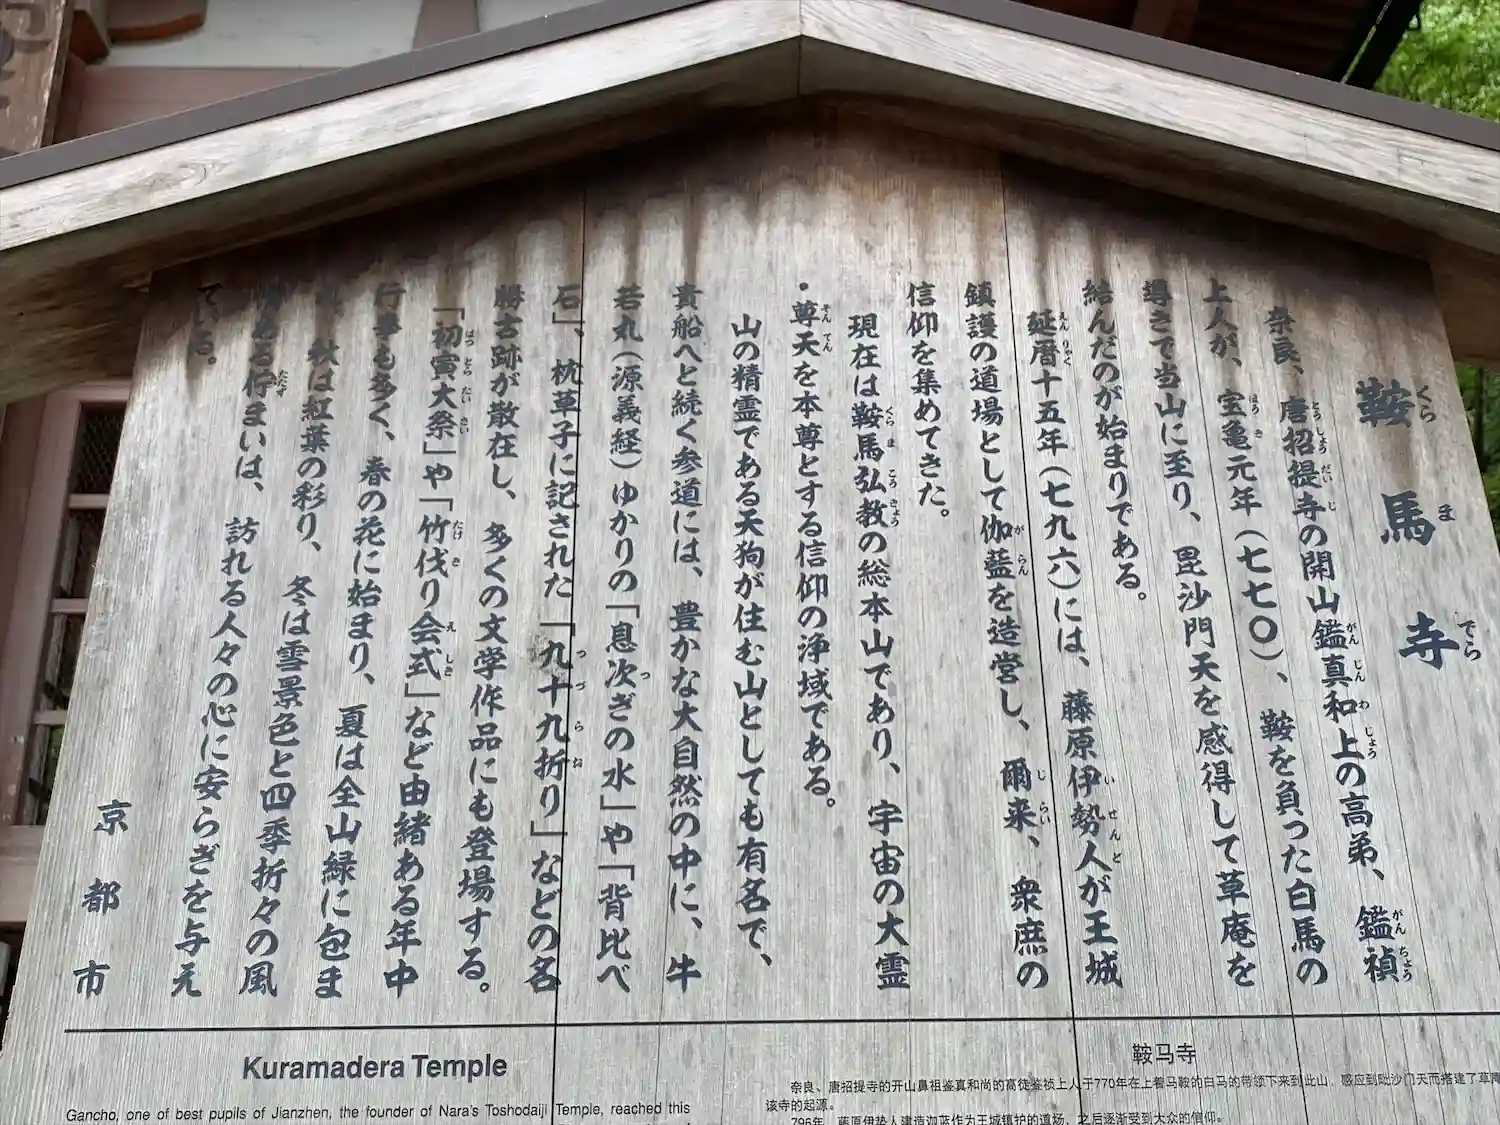 鞍馬寺
奈良、唐招提寺の開山鑑真和上の高弟、鑑禎
上人が、宝亀元年（七七〇）、鞍を負った白馬の
導きで当山に至り、毘沙門天を感得して草庵を
結んだのが始まりである。
延暦十五年（七九六）には、藤原伊勢人が王城
鎮護の道場として伽藍を造営し、爾来、衆庶の
信仰を集めてきた。
現在は鞍馬弘教の総本山であり、宇宙の大霊
・尊天を本尊とする信仰の浄域である。
山の精霊である天狗が住む山としても有名で、
貴船へと続く参道には、豊かな大自然の中に、牛
若丸（源義経）ゆかりの「息次ぎの水」や「背比べ
石」、枕草子に記された「九十九折り」などの名
勝古跡が散在し、多くの文学作品にも登場する。
「初寅大祭」や「竹伐り会式」など由緒ある年中
行事も多く、春の花に始まり、夏は全山緑に包ま
秋は紅葉の彩り、冬は雪景色と四季折々の風
ある佇まいは、訪れる人々の心に安らぎを与え
ている。
京都市
Kuramadera Temple
Gancho, one of best pupils of Jianzhen, the founder of Nara's Toshodaiji Temple, reached this
鞍马寺
奈良、唐招提寺的开山鼻祖鉴真和尚的高徒鉴祯上人于770年在上着马鞍的白马的带领下来到此山，感应到毗沙门天而搭建了草庵
该寺的起源。
796年，藤原伊势人建造迦蓝作为王城镇护的道场，之后逐渐受到大众的信仰。